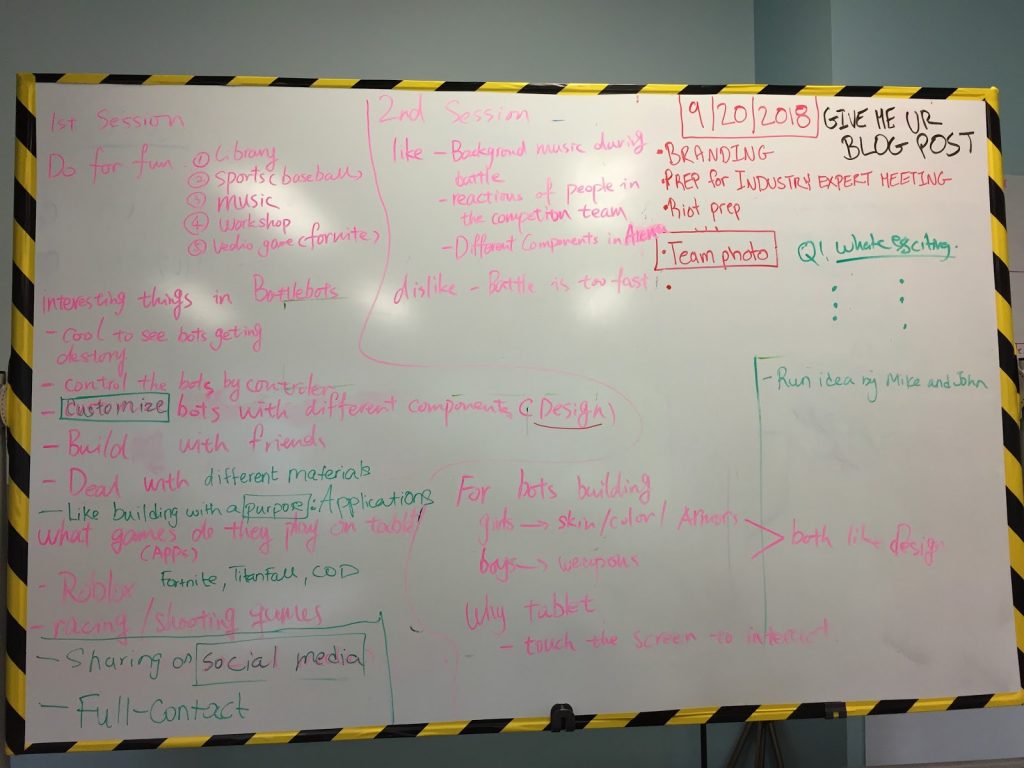 1st Session
Do for fun
① Library
② Sports (baseball)
③ music
④ workshop
⑤ Vedio game (fornite)
interesting things in Battlebots
- Cool to see bots geting
destory
- control the bots by controler
- Customize bots with different components (Design)
- Build with friends
- Deal with different materials
- Like building with a purpose: Applications
what games do they play on tablet
(APPs)
- Roblox Fortnite, Titanfall, COD
- racing/shooting games
- Sharing on social media
- Full-Contact
2nd Session
like - Background music during
battle
- reactions of people in
the competion team
- Different Components in Arena
dislike - Battle is too fast!
For bots building
girls → skin/color/ Armors
boys → weapons
both like design
Why tablet
- touch the screen to interact
9/20/2018
GIVE ME UR
BLOG POST
• BRANDING
• PREP for INDUSTRY EXPERT MEETING
• Riot prep
• Team photo
Q!. Whats exciting.
- Run idea by Mike and John